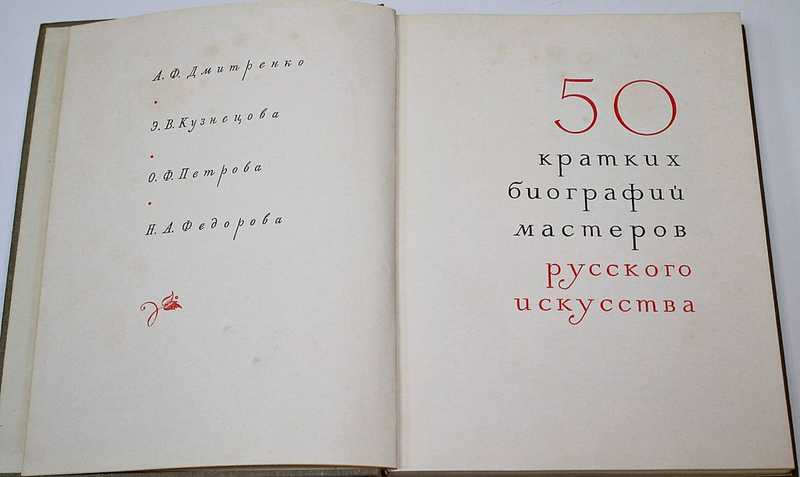 А. Ф. Дмитренко
Э. В. Кузнецова
О. Ф. Петрова
Н. А. Федорова
50
кратких
биографий
мастеров
русского
искусства